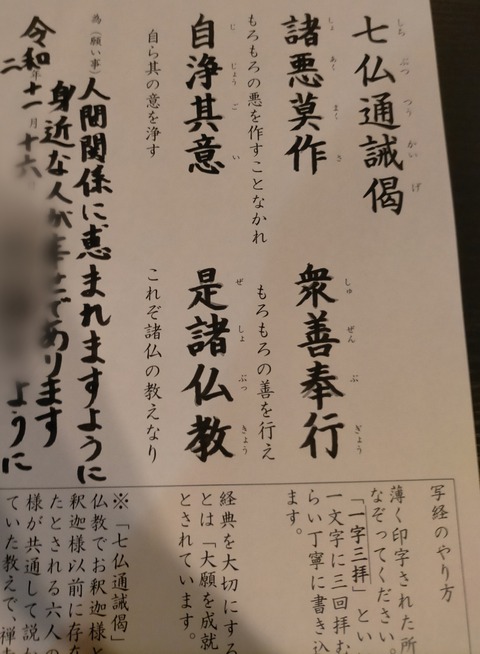 七仏通誡偈
しちぶつつうかいげ
諸悪莫作
しょあくまくさ
もろもろの悪を作すことなかれ
衆善奉行
しゅぜんぶぎょう
もろもろの善を行え
自浄其意
じじょうごい
自ら其の意を浄す
是諸仏教
ぜしょぶっきょう
これぞ諸仏の教えなり
為(願い事)
人間関係に恵まれますように
身近な人が幸せであります
ように
令和二年十一月十六
写経のやり方
薄く印字された所
なぞってください。
「一字三拝」とい
一文字に三回拝む
らい丁寧に書き込
ます。
経典を大切にする
とは「大願を成就
とされています。
※「七仏通誡偈」
仏教でお釈迦様と
釈迦様以前に存在
たとされる六人の
様が共通して説か
ていた教えで、禅